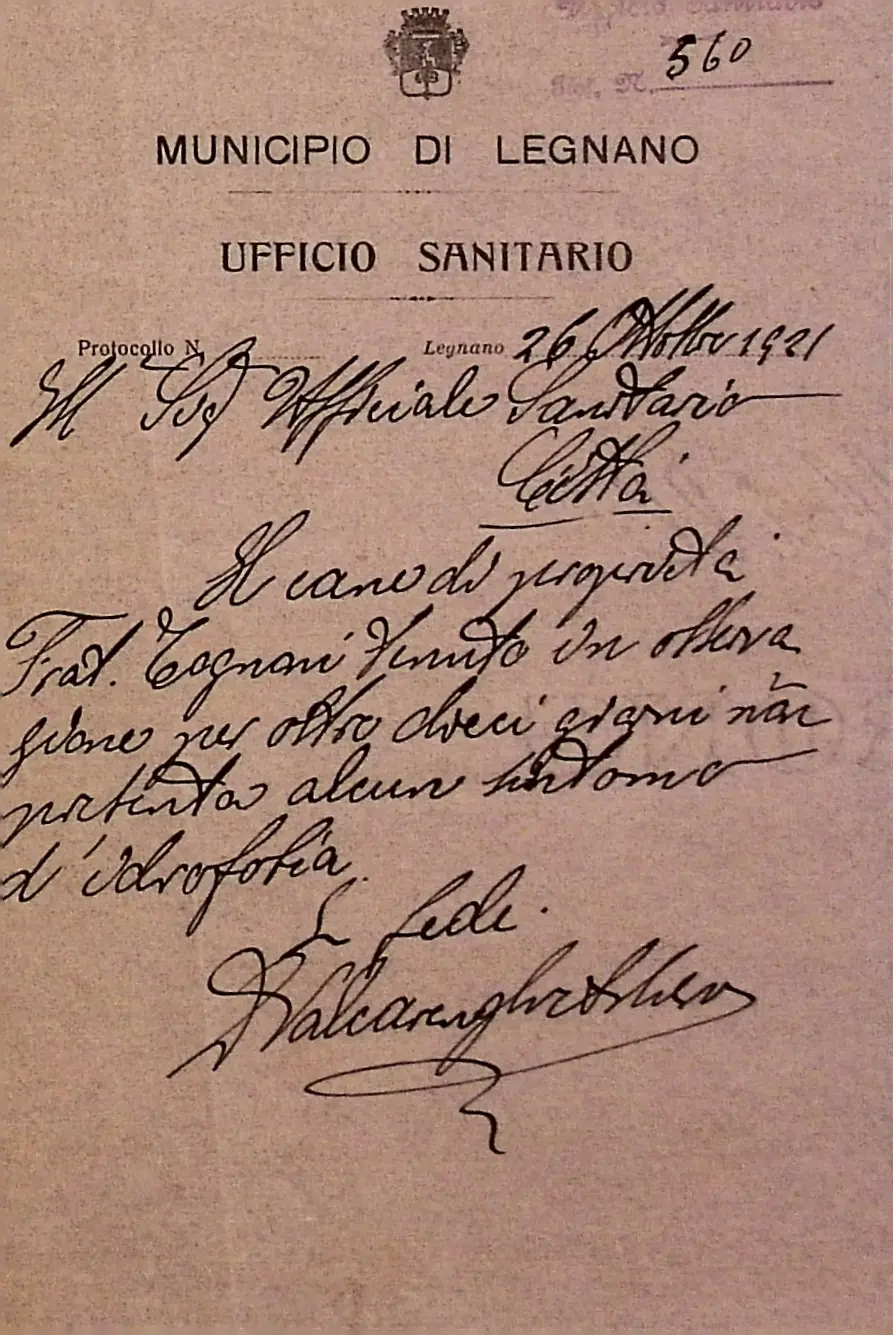 Ufficio Sanitario
Prot. N. 560
MUNICIPIO DI LEGNANO
UFFICIO SANITARIO
Protocollo N. Legnano 26 Ottobre 1921
Ill Sig Ufficiale Sanitario
Città
Il cane di proprietà
Frat. Cognani tenuto in osserva
zione per oltre dieci giorni non
presenta alcun sintomo
d'idrofobia
In fede.
Valcarenghi